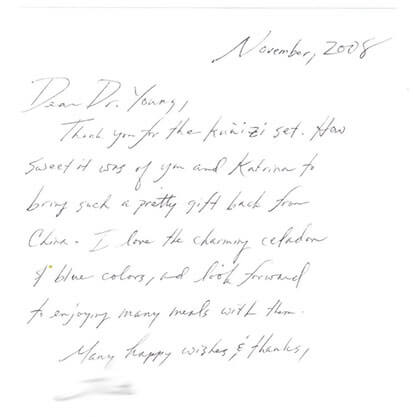 November, 2008
Dear Dr. Young,
Thank you for the kuàizi set. How
sweet it was of you and Katrina to
bring such a pretty gift back from
China. I love the charming celadon
& blue colors, and look forward
to enjoying many meals with them.
Many happy wishes & thanks,